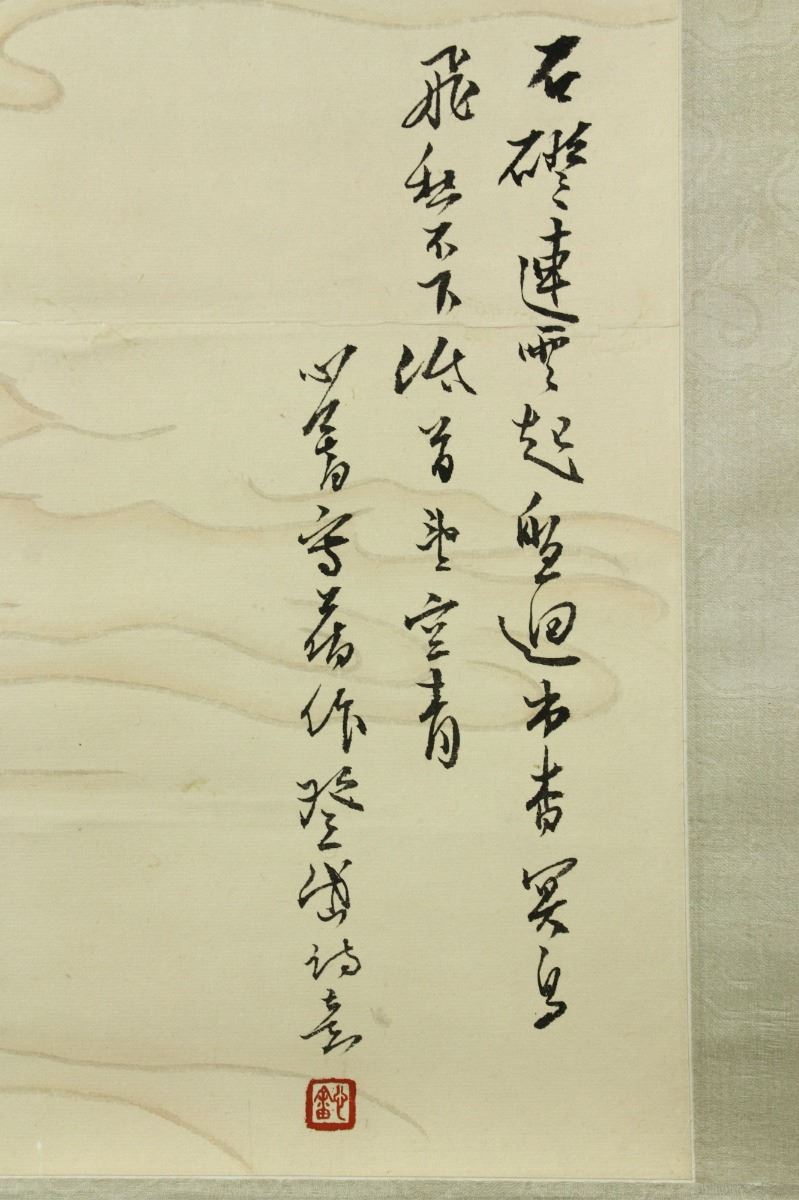 石磴連雲起盤迴出杳冥鳥
飛愁不下低首望空青
心畬寫舊作登岱詩意
心畬